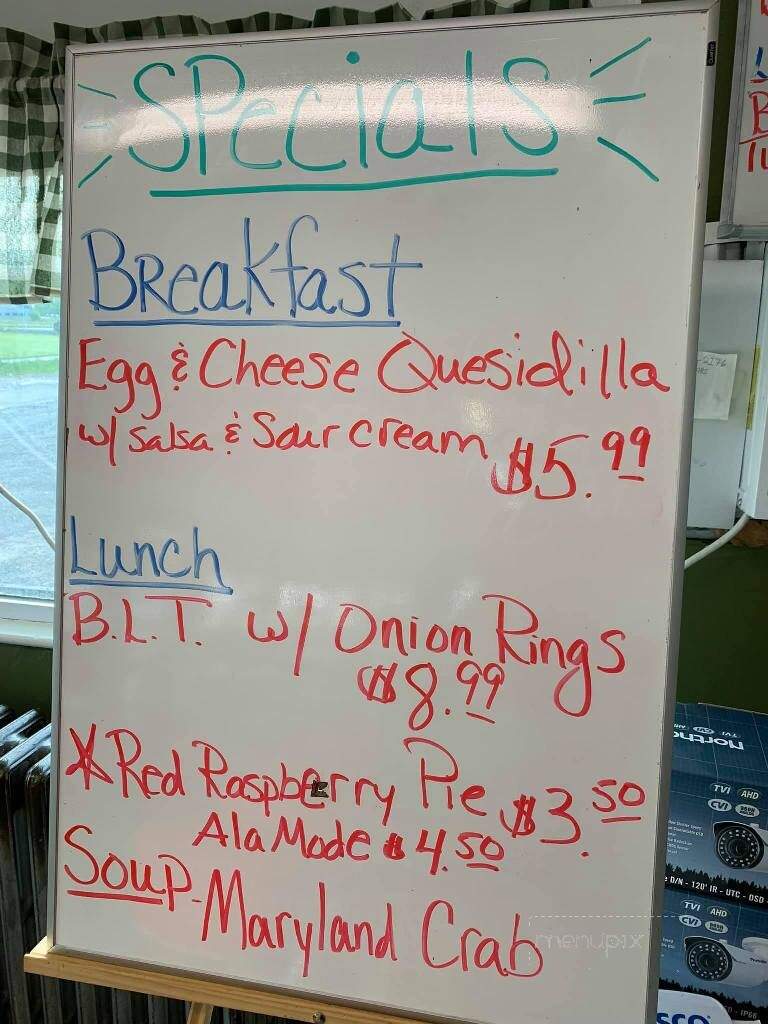 SPecials
Breakfast
Egg & Cheese Quesidilla
w/ Salsa & Sour cream $5.99
Lunch
B.L.T. w/ Onion Rings
$8.99
*Red Raspberry Pie $3.50
Ala Mode $4.50
Soup - Maryland Crab
menupix
TVI AHD
CVI
e D/N - 120° IR - UTC - DSD
TVI AHD
CVI
D - IP66